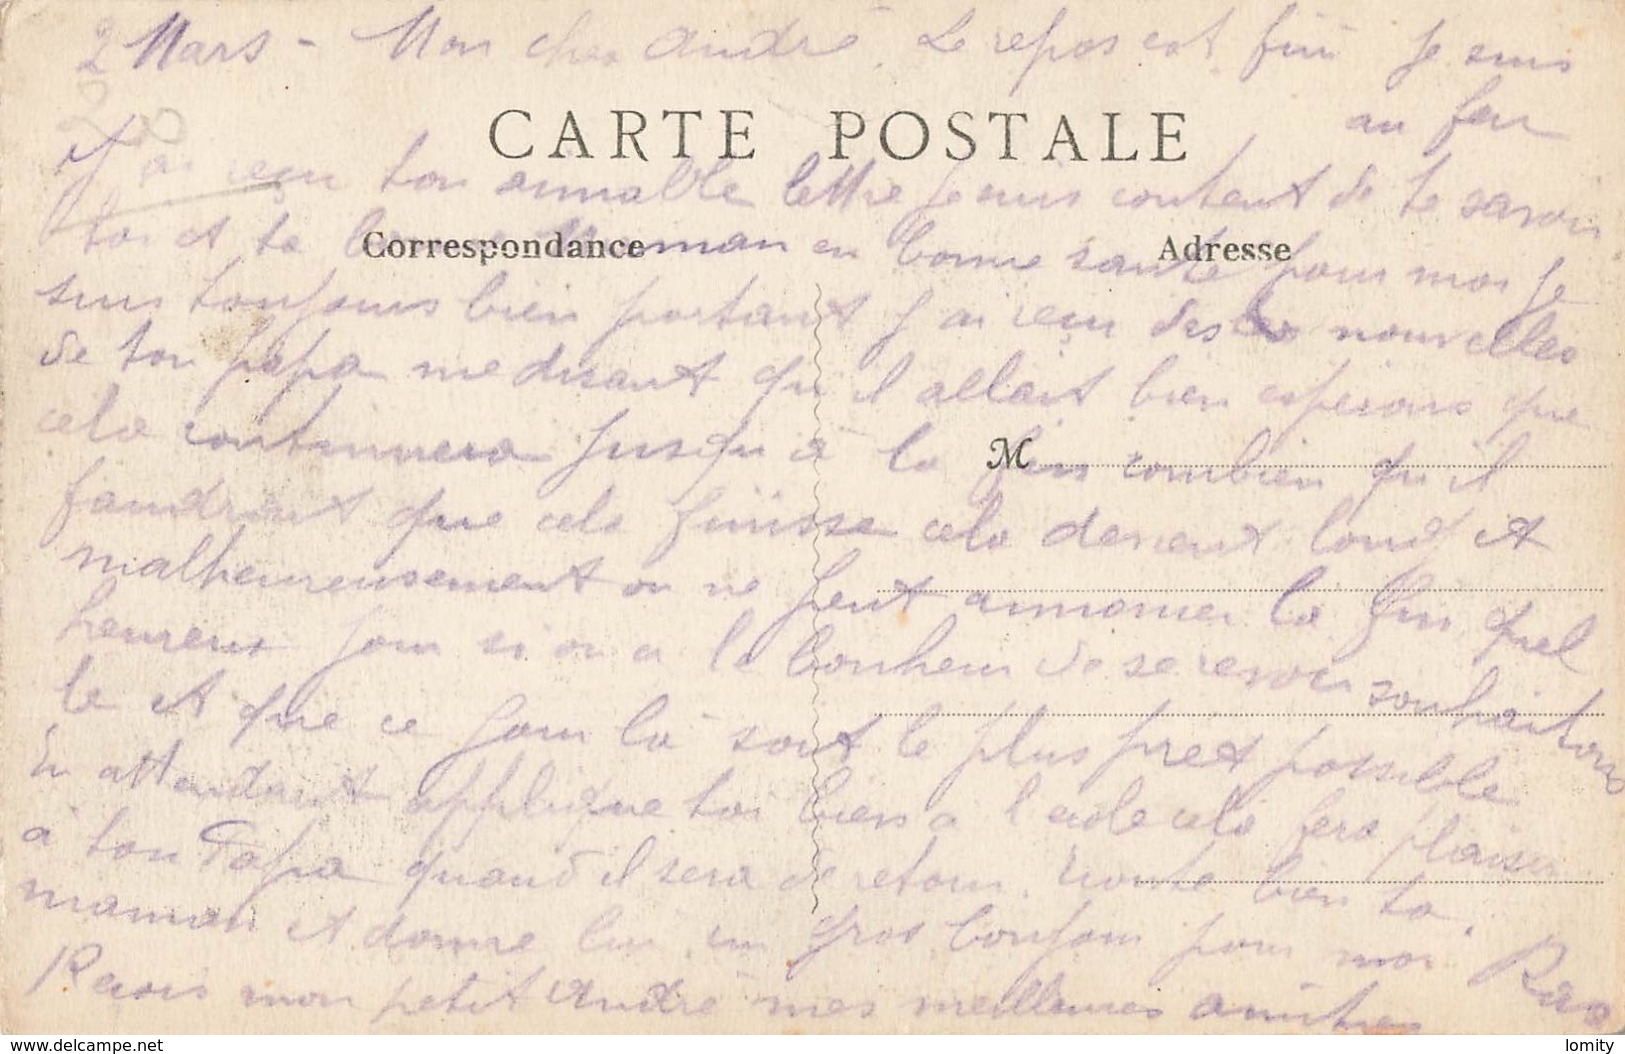 2 Mars - Mon cher André. Le repos est fini Je suis
au feu
200
CARTE POSTALE
J'ai reçu ton aimable lettre Je suis content de te savoir
toi et ta maman en bonne santé pour moi Je
Correspondance
Adresse
suis toujours bien portant J'ai reçu des nouvelles
de ton papa me disant qu'il allait bien espérons que
cela continuera jusqu'à la fin combien qu'il
M
faudrait que cela finisse cela devient long et
malheureusement on ne peut annoncer la fin quel
heureux jour si on a le bonheur de se revoir souhaitons
le et que ce jour là soit le plus pret possible
En attendant applique toi bien a l'ecole cela fera plaisir
à ton Papa quand il sera de retour. bien ta
maman et donne lui un gros bonjour pour moi
Recois mon petit André mes meilleures amitiés
delcampe.net
lomity